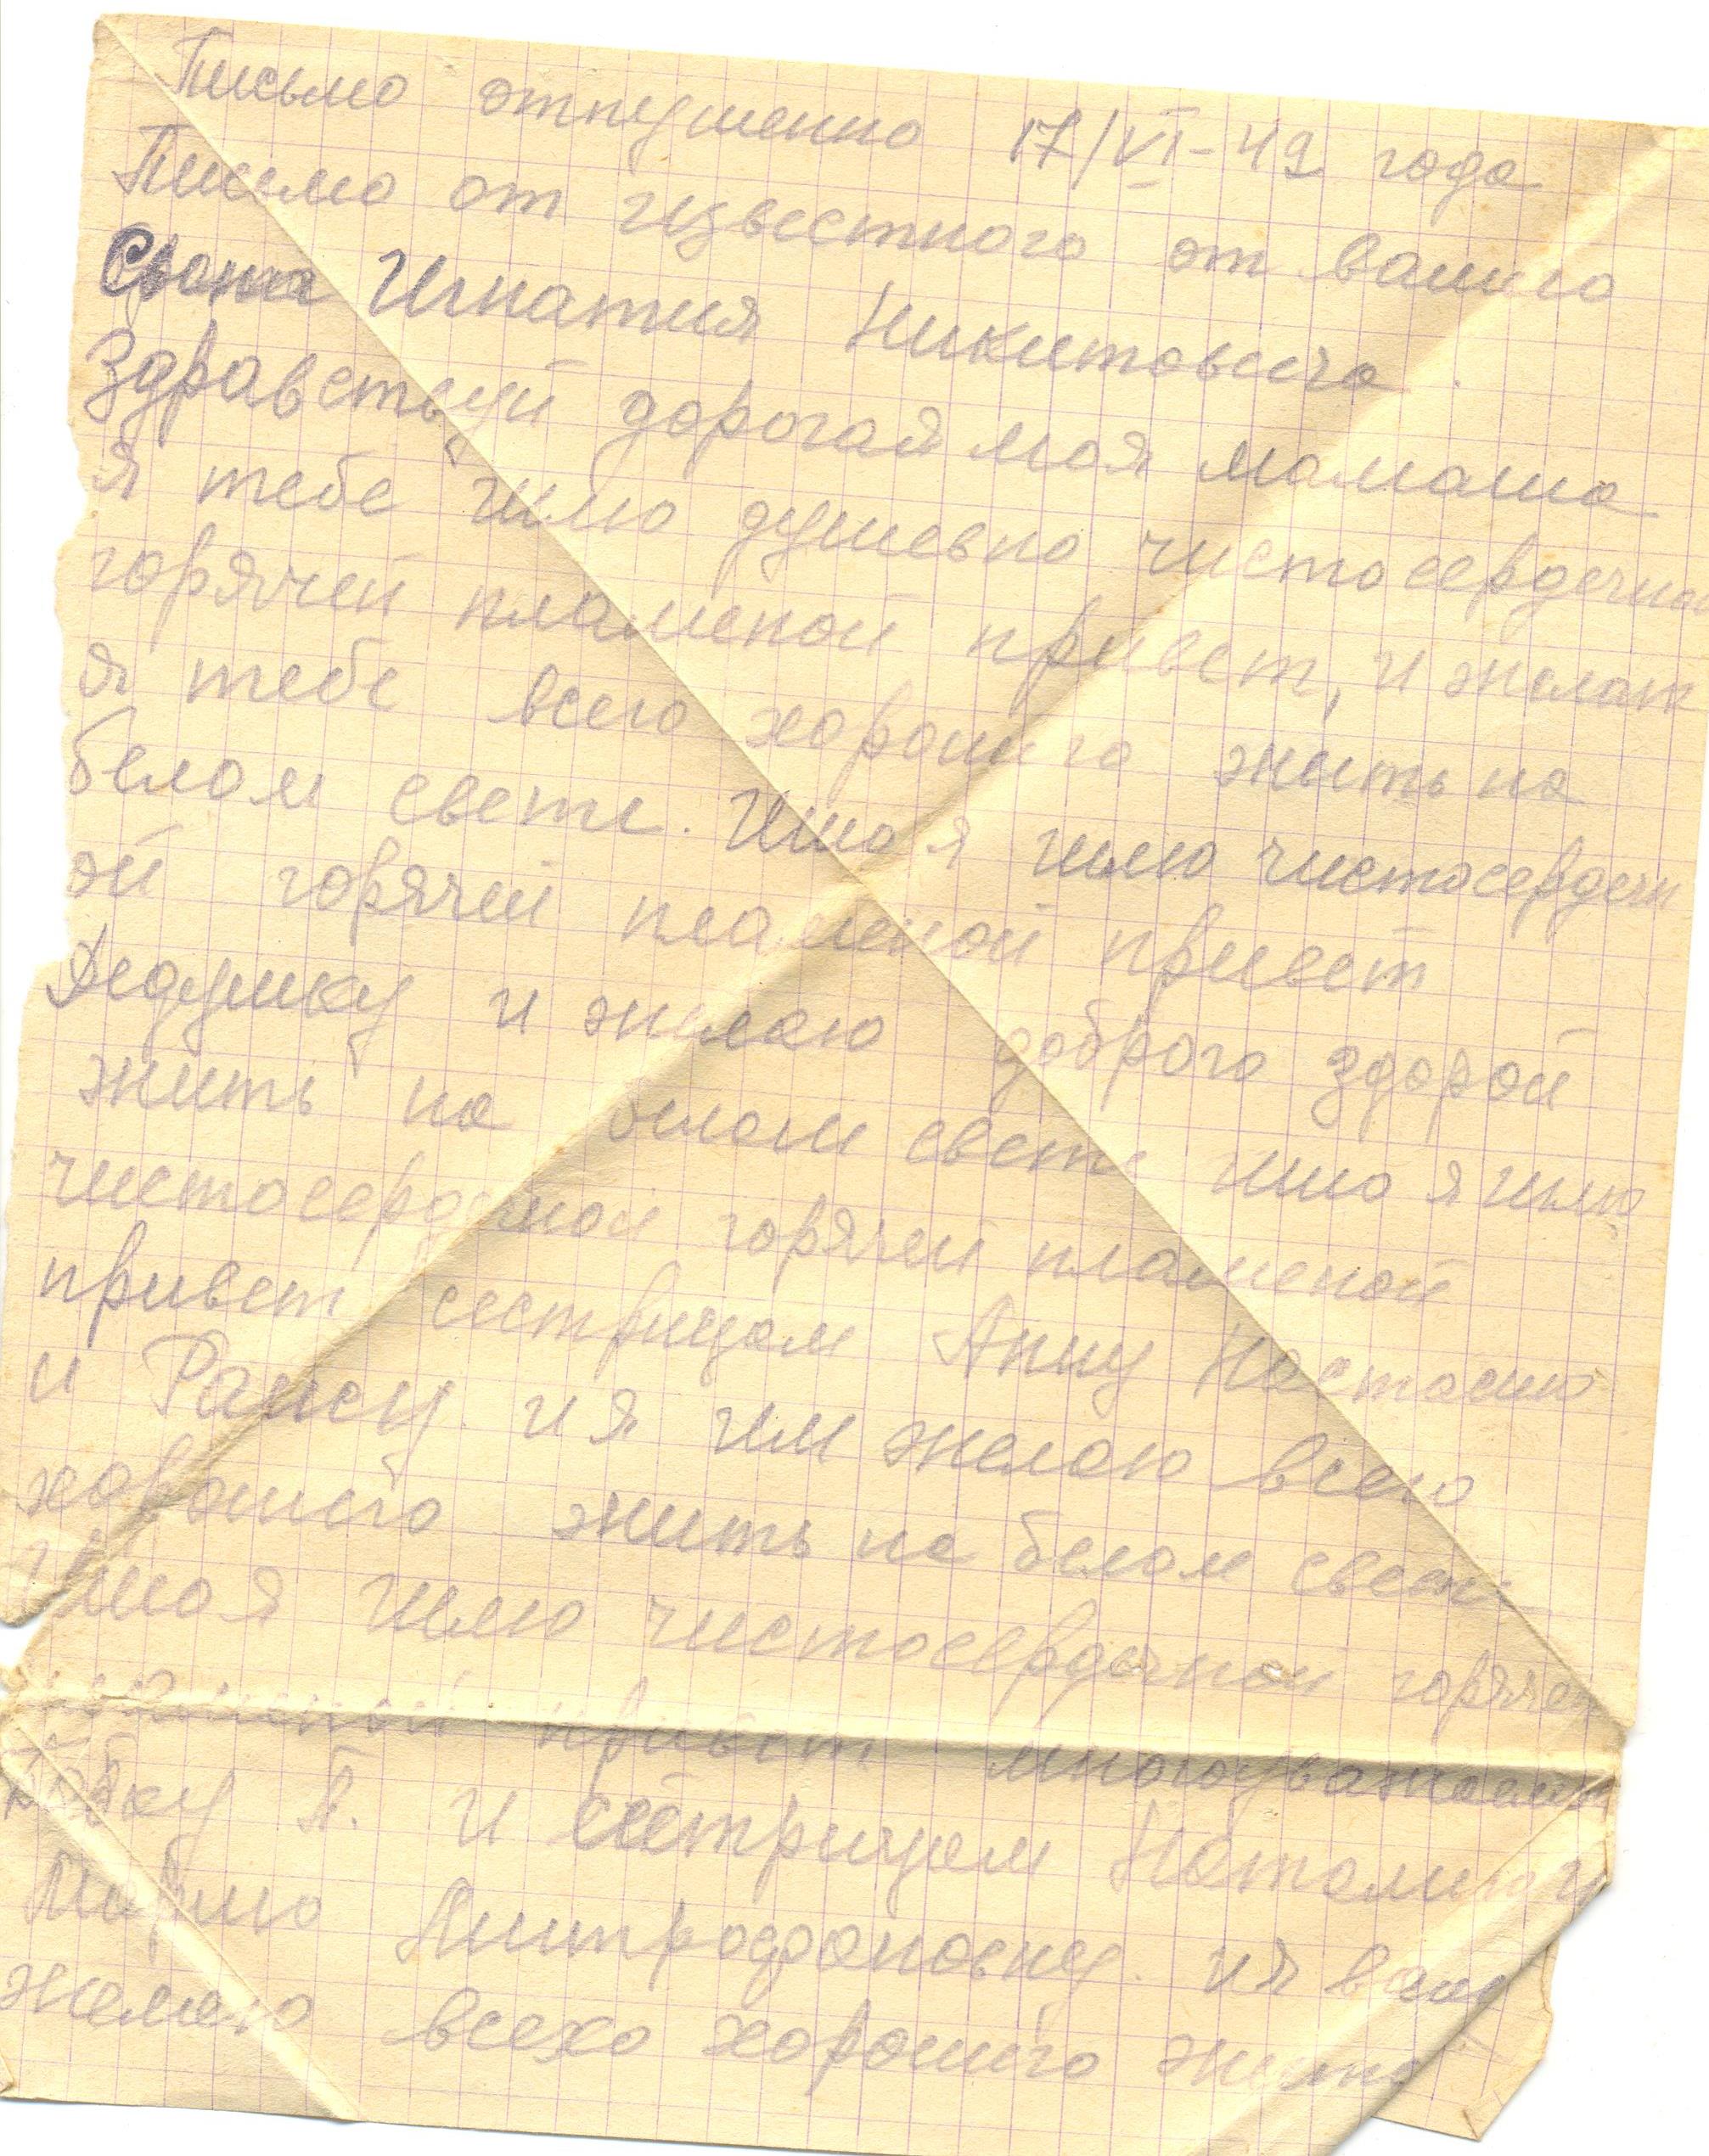 Письмо отпушенно 17/VI-42 года
Писмо от известного от вашиго
Сьона Игнатия Никитовича.
Здравствуй дорогая моя мамаша
Я тебе шлю душевно чистосердечной
горячей пламеной привет, и желаю
я тебе всего хорошиго жить на
белом свети. Ишо я шлю чистосердечн
ой горячей пламеной привет
Дедушку и желаю доброго здорой
жить на белом свети ишо я шлю
чистосердечной горячей пламеной
привет сестрицам Анну Настасию
и Раису. и я им желаю всего
хорошего жить на белом свети
Ишо я шлю чистосердечной горячей
пламеной привет многоуважаемы
А. и сестрицам Наталию и
Марию Митрофановну. и я вам
желаю всехо хорошиго жить